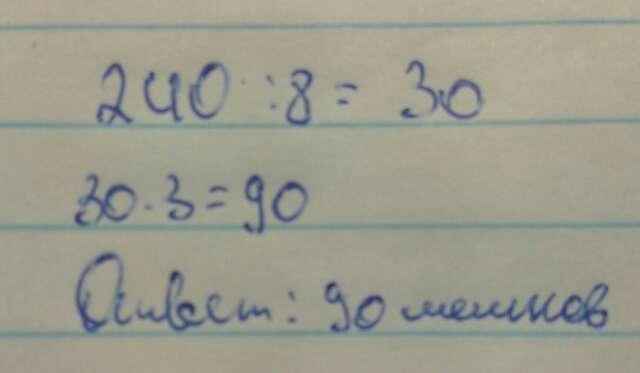 240 : 8 = 30
30 · 3 = 90
Ответ: 90 мешков